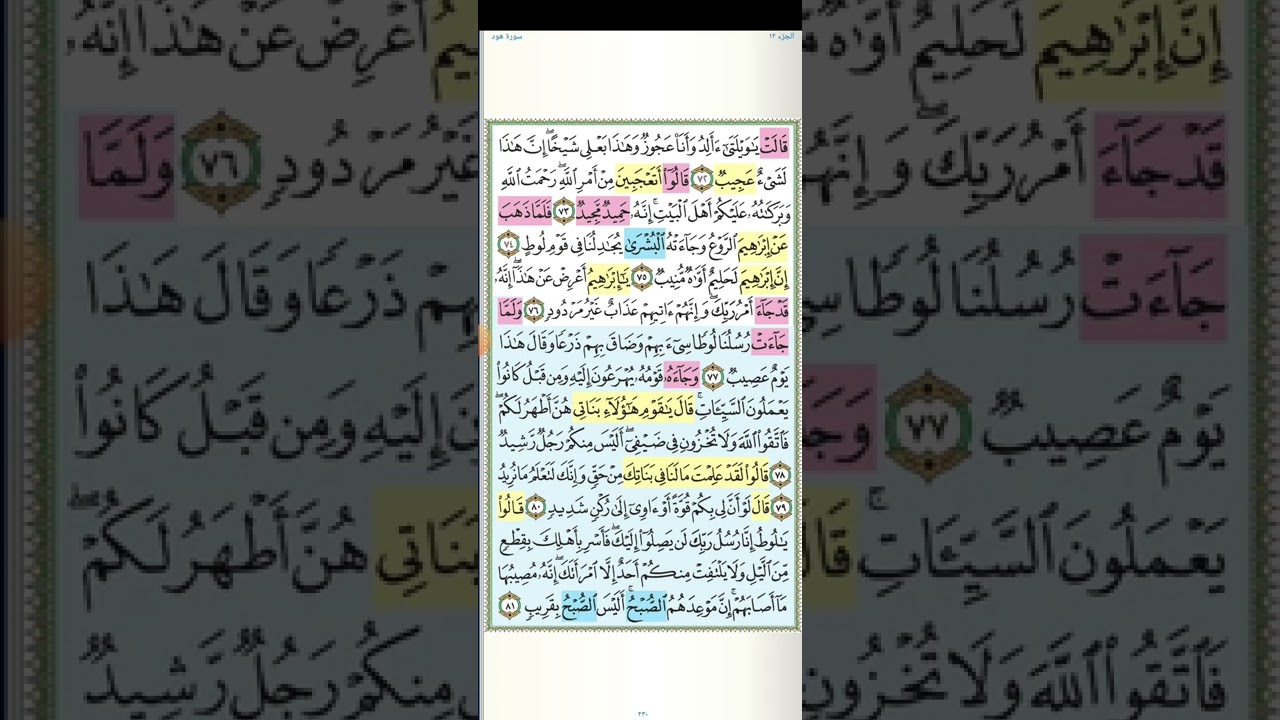 سورة هود
الجزء ١٢
قَالَتْ يَٰوَيْلَتَىٰٓ ءَأَلِدُ وَأَنَا۠ عَجُوزٌ وَهَٰذَا بَعْلِى شَيْخًا ۖ إِنَّ هَٰذَا
لَشَىْءٌ عَجِيبٌ ٧٢ قَالُوٓا۟ أَتَعْجَبِينَ مِنْ أَمْرِ ٱللَّهِ ۖ رَحْمَتُ ٱللَّهِ
وَبَرَكَٰتُهُۥ عَلَيْكُمْ أَهْلَ ٱلْبَيْتِ ۚ إِنَّهُۥ حَمِيدٌ مَّجِيدٌ ٧٣ فَلَمَّا ذَهَبَ
عَنْ إِبْرَٰهِيمَ ٱلرَّوْعُ وَجَآءَتْهُ ٱلْبُشْرَىٰ يُجَٰدِلُنَا فِى قَوْمِ لُوطٍ ٧٤
إِنَّ إِبْرَٰهِيمَ لَحَلِيمٌ أَوَّٰهٌ مُّنِيبٌ ٧٥ يَٰٓإِبْرَٰهِيمُ أَعْرِضْ عَنْ هَٰذَآ ۖ إِنَّهُۥ
قَدْ جَآءَ أَمْرُ رَبِّكَ ۖ وَإِنَّهُمْ ءَاتِيهِمْ عَذَابٌ غَيْرُ مَرْدُودٍ ٧٦ وَلَمَّا
جَآءَتْ رُسُلُنَا لُوطًا سِىٓءَ بِهِمْ وَضَاقَ بِهِمْ ذَرْعًا وَقَالَ هَٰذَا
يَوْمٌ عَصِيبٌ ٧٧ وَجَآءَهُۥ قَوْمُهُۥ يُهْرَعُونَ إِلَيْهِ وَمِن قَبْلُ كَانُوا۟
يَعْمَلُونَ ٱلسَّيِّـَٔاتِ ۚ قَالَ يَٰقَوْمِ هَٰٓؤُلَآءِ بَنَاتِى هُنَّ أَطْهَرُ لَكُمْ ۖ
فَٱتَّقُوا۟ ٱللَّهَ وَلَا تُخْزُونِ فِى ضَيْفِىٓ ۖ أَلَيْسَ مِنكُمْ رَجُلٌ رَّشِيدٌ
٧٨ قَالُوا۟ لَقَدْ عَلِمْتَ مَا لَنَا فِى بَنَاتِكَ مِنْ حَقٍّ وَإِنَّكَ لَتَعْلَمُ مَا نُرِيدُ
٧٩ قَالَ لَوْ أَنَّ لِى بِكُمْ قُوَّةً أَوْ ءَاوِىٓ إِلَىٰ رُكْنٍ شَدِيدٍ ٨٠ قَالُوا۟
يَٰلُوطُ إِنَّا رُسُلُ رَبِّكَ لَن يَصِلُوٓا۟ إِلَيْكَ ۖ فَأَسْرِ بِأَهْلِكَ بِقِطْعٍ
مِّنَ ٱلَّيْلِ وَلَا يَلْتَفِتْ مِنكُمْ أَحَدٌ إِلَّا ٱمْرَأَتَكَ ۖ إِنَّهُۥ مُصِيبُهَا
مَآ أَصَابَهُمْ ۚ إِنَّ مَوْعِدَهُمُ ٱلصُّبْحُ ۚ أَلَيْسَ ٱلصُّبْحُ بِقَرِيبٍ ٨١
٢٣٠